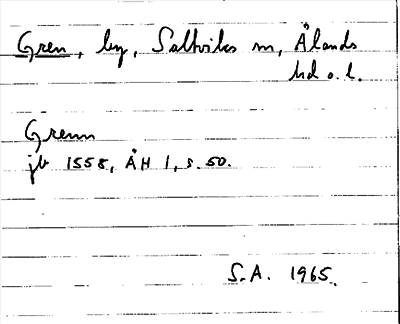 Gren, by, Saltviks sn, Ålands
hd o. l.
Grenn
jb 1558, ÅH 1, s. 50.
S.A. 1965.